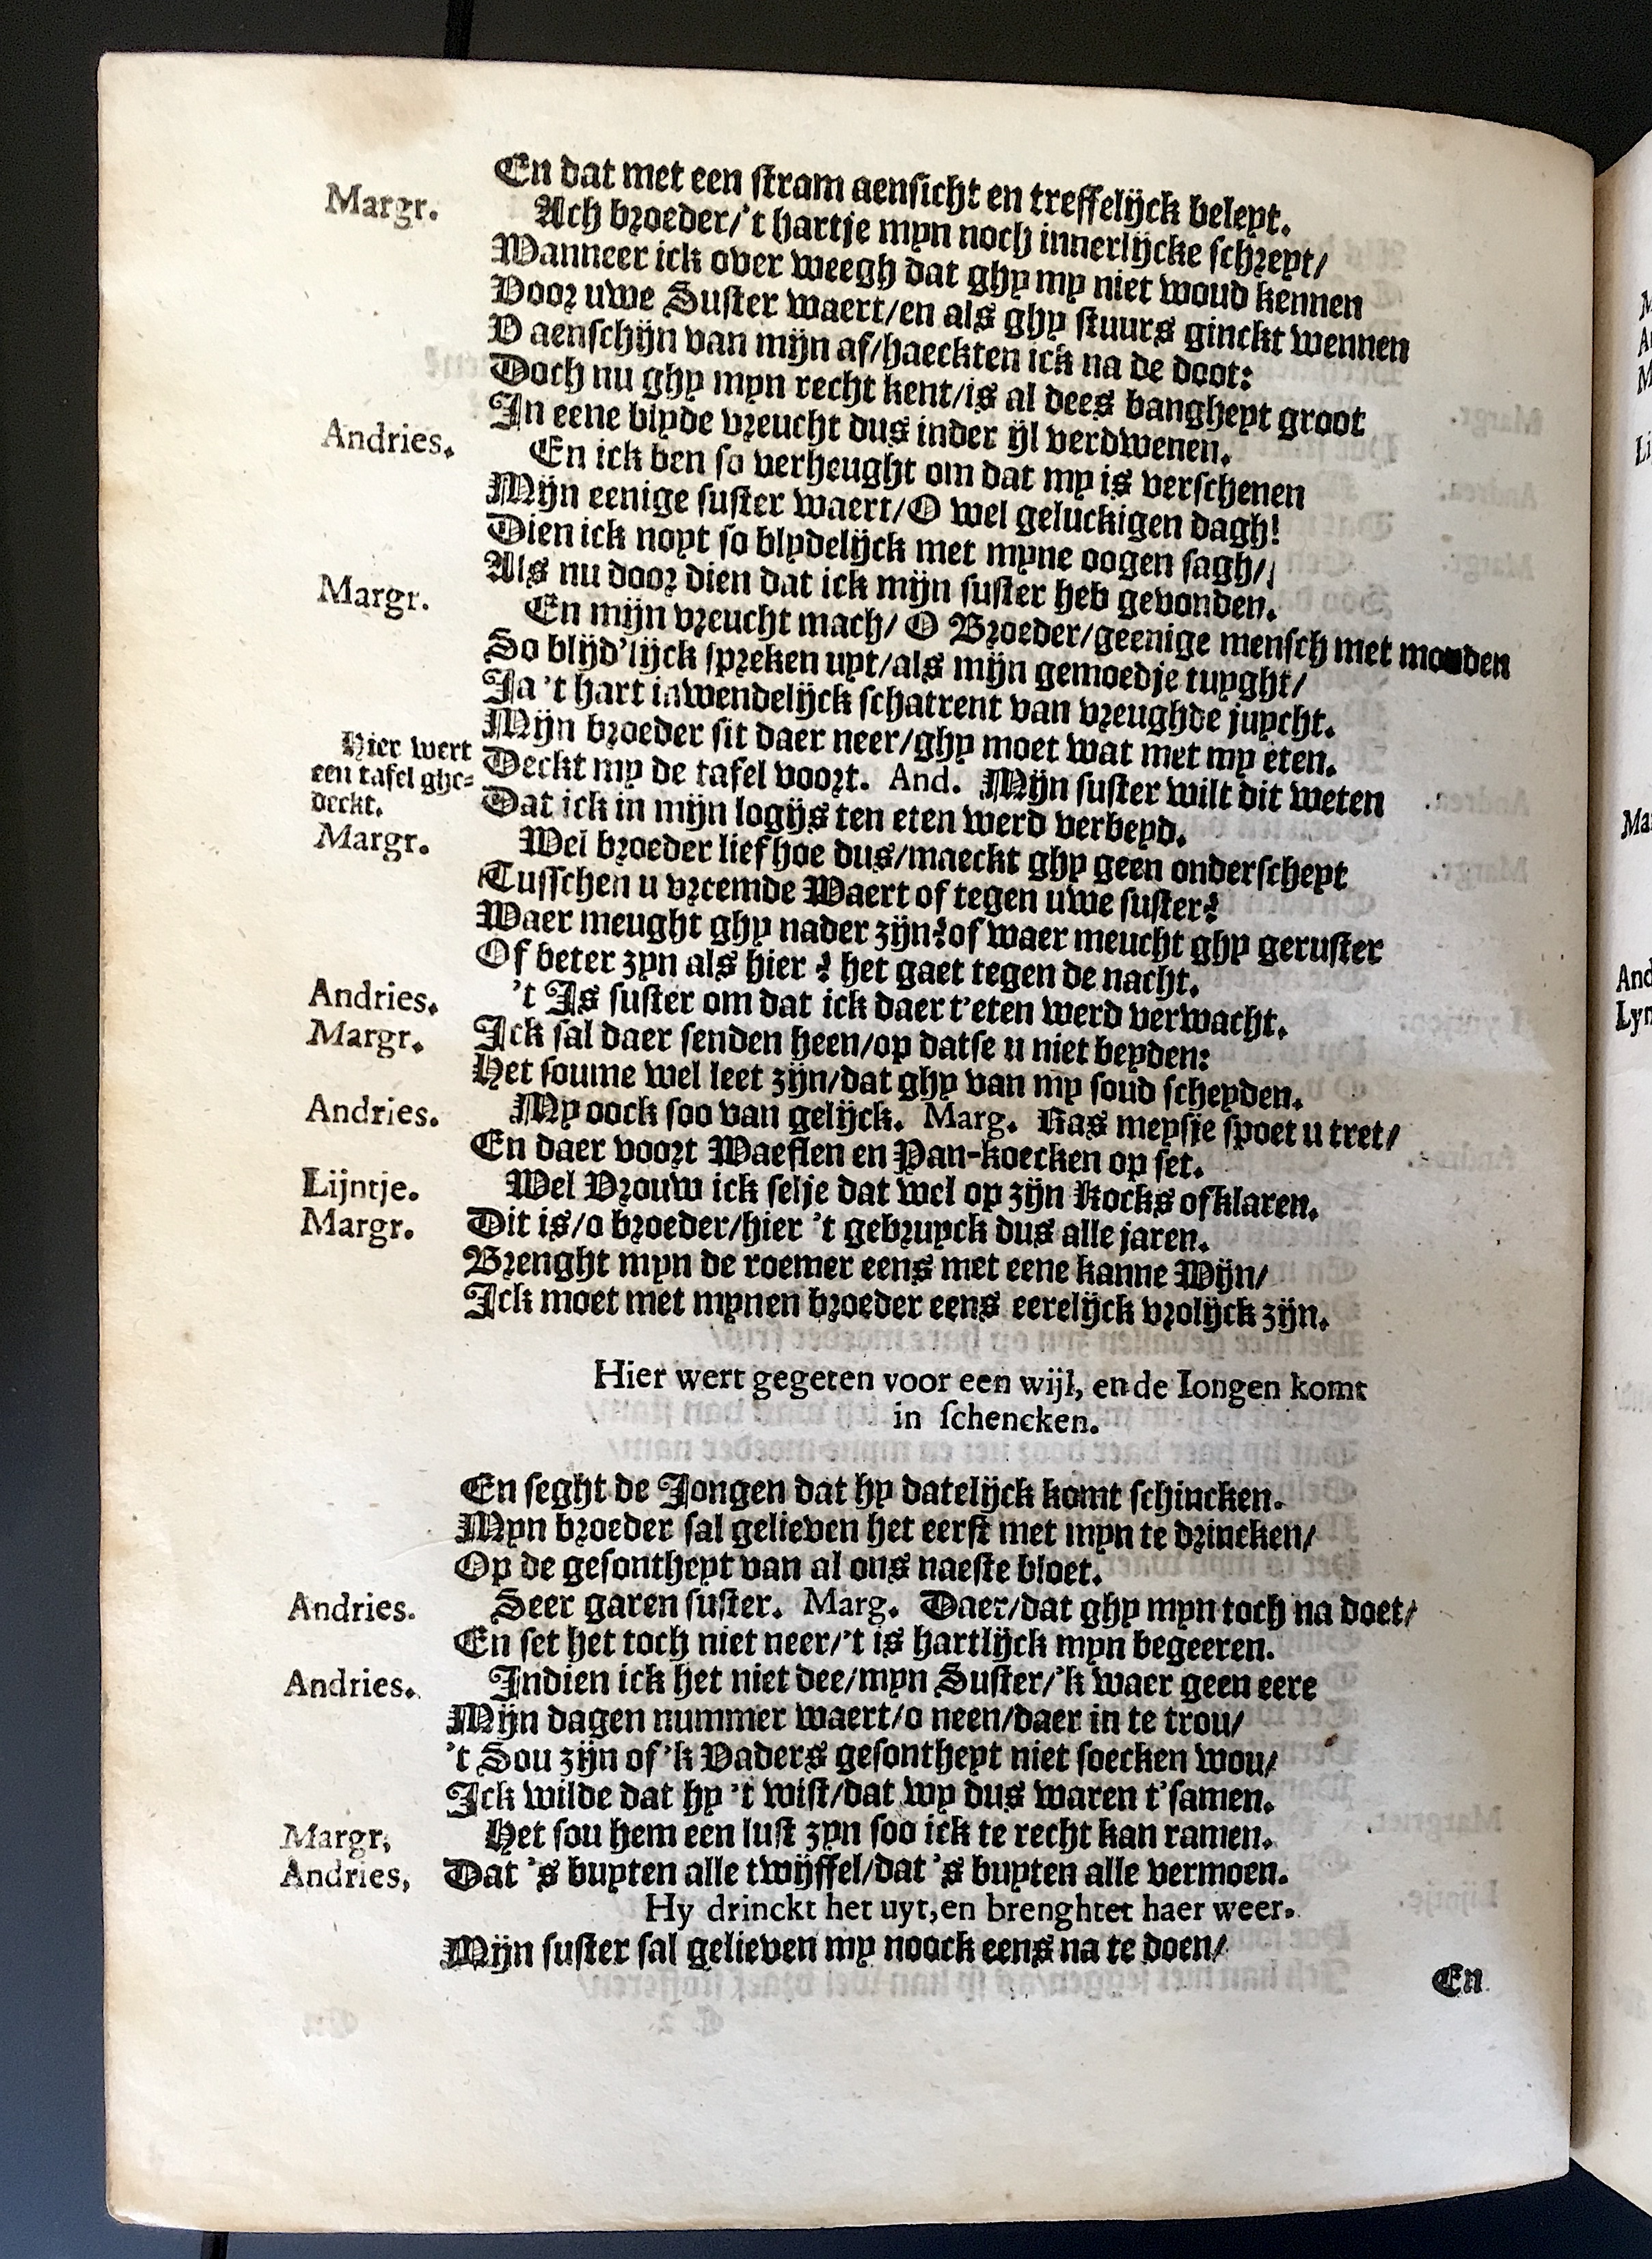 En dat met een stram aensicht en treffelijck beleyt.
Margr. Ach broeder/'t hartje myn noch innerlijcke schreyt/
Wanneer ick over weegh dat ghy my niet woud kennen
Voor uwe Suster waert/en als ghy stuurs ginckt wennen
D aenschijn van mijn af/haeckten ick na de doot:
Doch nu ghy myn recht kent/is al dees bangheyt groot
In eene blyde vreucht dus inder ijl verdwenen.
Andries. En ick ben so verheught om dat my is verschenen
Mijn eenige suster waert/O wel geluckigen dagh!
Dien ick noyt so blydelijck met myne oogen sagh/
Als nu door dien dat ick mijn suster heb gevonden.
Margr. En mijn vreucht mach/ O Broeder/geenige mensch met monden
So blijd'lijck spreken uyt/als mijn gemoedje tuyght/
Ja 't hart inwendelijck schatrent van vreughde juycht.
Mijn broeder sit daer neer/ghy moet wat met my eten.
Hier wert een tafel ghe-deckt.
Deckt my de tafel voort. And. Mijn suster wilt dit weten
Dat ick in mijn logijs ten eten werd verbeyd.
Margr. Wel broeder lief hoe dus/maeckt ghy geen onderscheyt
Tusschen u vreemde Waert of tegen uwe suster?
Waer meught ghy nader zijn? of waer meucht ghy geruster
Of beter zyn als hier? het gaet tegen de nacht.
Andries. 't Is suster om dat ick daer t'eten werd verwacht.
Margr. Ick sal daer senden heen/op datse u niet beyden:
Het soume wel leet zijn/dat ghy van my soud scheyden.
Andries. My oock soo van gelijck. Marg. Ras meysje spoet u tret/
En daer voort Waeflen en Pan-koecken op set.
Lijntje. Wel Vrouw ick selje dat wel op zijn Kocks ofklaren.
Margr. Dit is/o broeder/hier 't gebruyck dus alle jaren.
Brenght myn de roemer eens met eene kanne Wijn/
Ick moet met mynen broeder eens eerelijck vrolijck zijn.
Hier wert gegeten voor een wijl, en de Iongen komt
in schencken.
En seght de Jongen dat hy datelijck komt schincken.
Myn broeder sal gelieven het eerst met myn te drincken/
Op de gesontheyt van al ons naeste bloet.
Andries. Seer garen suster. Marg. Daer/dat ghy myn toch na doet/
En set het toch niet neer/'t is hartlijck myn begeeren.
Andries. Indien ick het niet dee/myn Suster/'k waer geen eere
Mijn dagen nummer waert/o neen/daer in te trou/
't Sou zijn of 'k Vaders gesontheyt niet soecken wou/
Ick wilde dat hy 't wist/dat wy dus waren t'samen.
Margr, Het sou hem een lust zyn soo ick te recht kan ramen.
Andries, Dat 's buyten alle twijffel/dat 's buyten alle vermoen.
Hy drinckt het uyt, en brenghtet haer weer.
Mijn suster sal gelieven my noock eens na te doen/
En